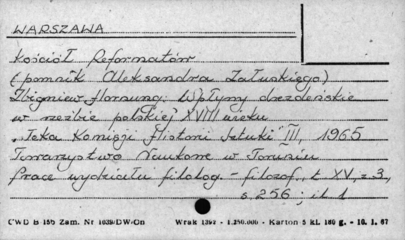 WARSZAWA
Kościół Reformatów
(pomnik Aleksandra Załuskiego)
Zbigniew Hornung: Wpływy drezdeńskie
w rzeźbie polskiej XVIII wieku
"Teka Komisji Historii Sztuki" III, 1965
Towarzystwo Naukowe w Toruniu
Prace wydziału filolog. - filozof., t. XV, z. 3,
s. 256; il. 1
CWD B-15b Zam. Nr DW-On Wrak 1392 - 1.250.000 - Karton 5 kl. 180 g. - 16. 1. 67